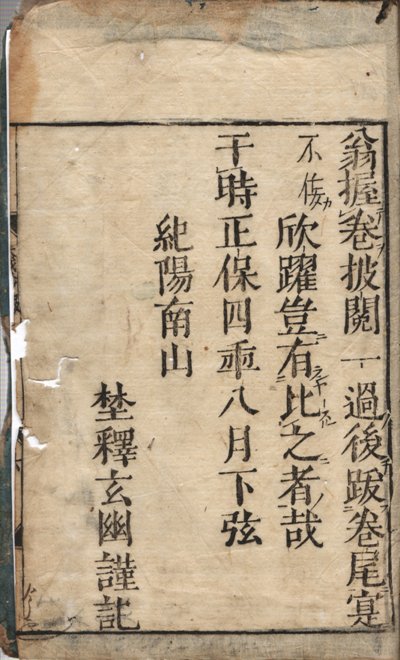 翁握卷披閱一過後跋卷尾寔
不侫欣躍豈有比之者哉
于時正保四乖八月下弦
紀陽南山
埜釋玄幽謹記